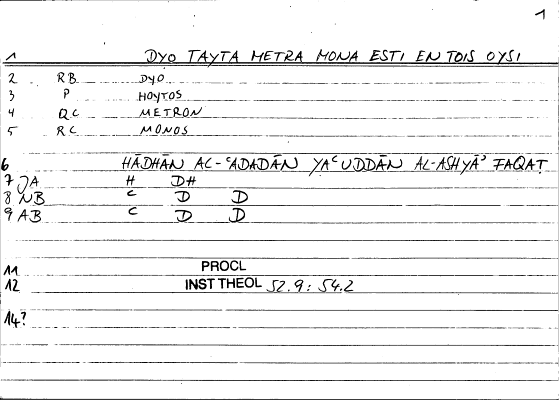 1
1 DYO TAYTA METRA MONA ESTI EN TOIS OYSI
2 RB DYO
3 P HOYTOS
4 QC METRON
5 RC MONOS
6 HĀDHĀN AL-ʿADADĀN YAʿUDDĀN AL-ASHYĀʾ FAQAṬ
7 JA H DH
8 NB C D D
9 AB C D D
11 PROCL
12 INST THEOL 52.9: 54.2
14?